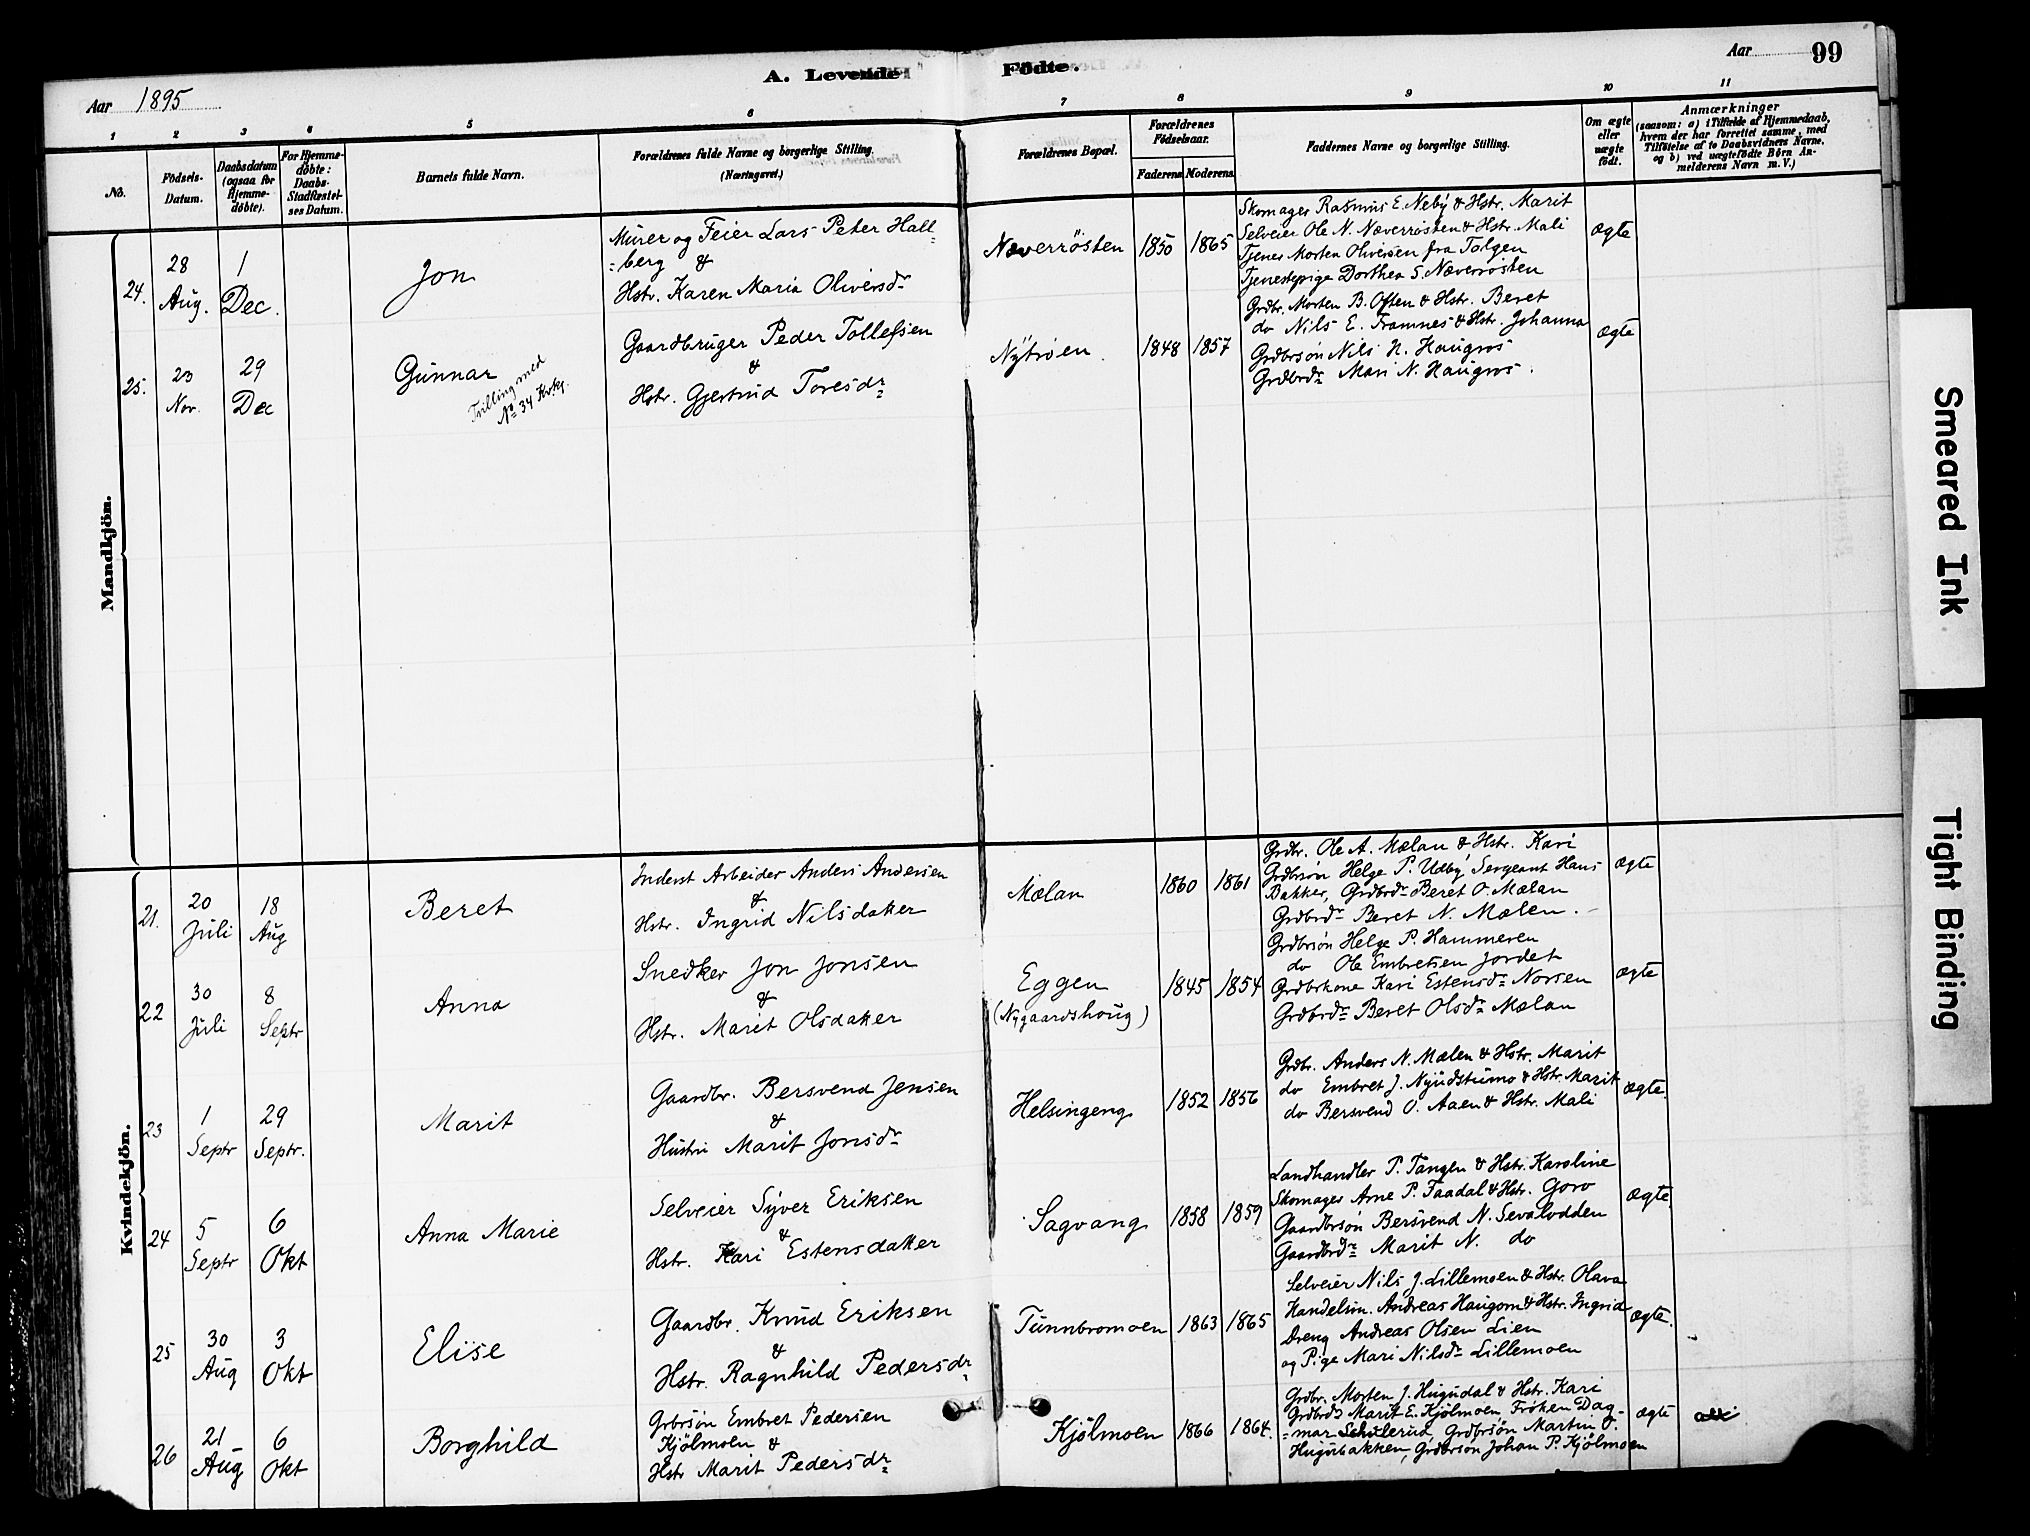 A. Levende Födte.
Aar 1895
Aar 99
1 2 3 6 5 6 7 8 9 10 11
No.
Födsels-Datum.
Daabsdatum (ogsaa for Hjemme-döbte).
For Hjemme-döbte: Daabs-Stadfæstel-ses Datum.
Barnets fulde Navn.
Forældrenes fulde Navne og borgerlige Stilling.
(Næringsvei.)
Forældrenes Bopæl.
Forældrenes Födselsaar.
Faderens Moderens
Faddernes Navne og borgerlige Stilling.
Om ægte eller uægte födt.
Anmærkninger
(saasom: a) i Tilfælde af Hjemmedaab,
hvem der har forrettet samme, med
Tilföielse af to Daabsvidners Navne,
og b) ved uægtefödte Börn An-
melderens Navn m. V.)
Mandkjön.
24.
28 Aug.
1 Dec.
Jon
Murer og Feier Lars Peter Hall=
=berg &
Hstr. Karen Maria Oliversdr
Næverrösten
1850 1865
Skomager Rasmus E. Neby & Hstr. Marit
Selveier Ole N. Næverrösten & Hstr. Mali
Tjener Morten Oliversen fra Tolgen
Tjenestepige Dorthea S. Næverrösten
ægte
25.
23 Nov.
29 Dec
Gunnar
Tvilling med
No 34 Kvkj.
Gaardbruger Peder Tollefsen
&
Hstr. Gjertrud Toresdr
Nytröen.
1848 1857
Grdbr. Morten B. Often & Hstr. Beret
do Nils E. Framnes & Hstr. Johanna
Grdbrsön Nils N. Haugros
Grdbrdr Mari N. Haugros.
ægte
Kvindekjön.
21.
20 Juli
18 Aug
Beret
Inderst Arbeider Anders Andersen
&
Hstr. Ingrid Nilsdatter
Mælan
1860 1861
Grdbr. Ole A. Mælan & Hstr. Kari
Grdbrsön Helge P. Udby Sergeant Hans
Bakker, Grdbrdr Beret O. Mælan
Grdbrdr Beret N. Mælen.
ægte
22
30 Juli
8 Septr
Anna
Snedker Jon Jonsen
&
Hstr. Marit Olsdatter
Eggen
(Nygaardshoug)
1845 1854
Grdbrsön Helge P. Hammeren
do Ole Embretsen Jordet
Grdbrkone Kari Estensdr Norsen
Grdbrdr Beret Olsdr Mælan
ægte
23
1 Septr
29 Septr.
Marit
Gaardbr. Bersvend Jensen
&
Hustru Marit Jonsdr
Helsingeng
1852 1856
Grdbr. Anders N. Mælen & Hstr. Marit
do Embret J. Nyudstumo & Hstr. Marit
do Bersvend O. Aaen & Hstr. Mali
ægte.
24
5 Septr
6 Okt
Anna Marie
Selveier Syver Eriksen
&
Hstr. Kari Estensdatter
Sagvang
1858 1859
Landhandler P. Tangen & Hstr. Karoline
Skomager Arne P. Faadal & Hstr. Goro
Gaardbrsön Bersvend N. Sevalodden
Gaardbrdr Marit N. do
ægte.
25
30 Aug
3 Okt
Elise
Gaardbr. Knud Eriksen
&
Hstr. Ragnhild Pedersdr
Tunnbromoen
1863 1865
Selveier Nils J. Lillemoen & Hstr. Olava
Handelsm. Andreas Haugom & Hstr. Ingrid
Dreng Andreas Olsen Lien
og Pige Mari Nilsdr Lillemoen
ægte.
26
21 Aug
6 Okt
Borghild
Grbrsön Embret Pedersen
Kjölmoen &
Hstr Marit Pedersdr
Kjölmoen
1866 1864.
Grdbr. Morten J. Hugudal & Hstr. Kari
Grdbrdr Marit E. Kjölmoen Fröken Dag-
=mar Schüllerud, Grdbrsön Martin O.
Hugubakken, Grdbrsön Johan P. Kjölmoen
ægte
Smeared Ink
Tight Binding